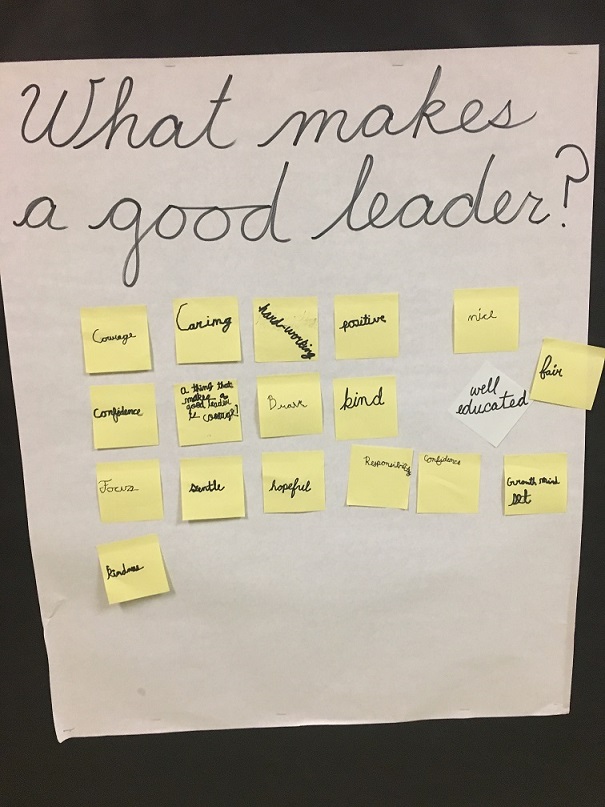 What makes
a good leader?
Courage
Caring
hard-working
positive
nice
fair
Confidence
a thing that
makes a
good leader
is courage!
Brave
kind
well
educated
Focus
gentle
hopeful
Responsibility
Confidence
Growth mind
set
kindness